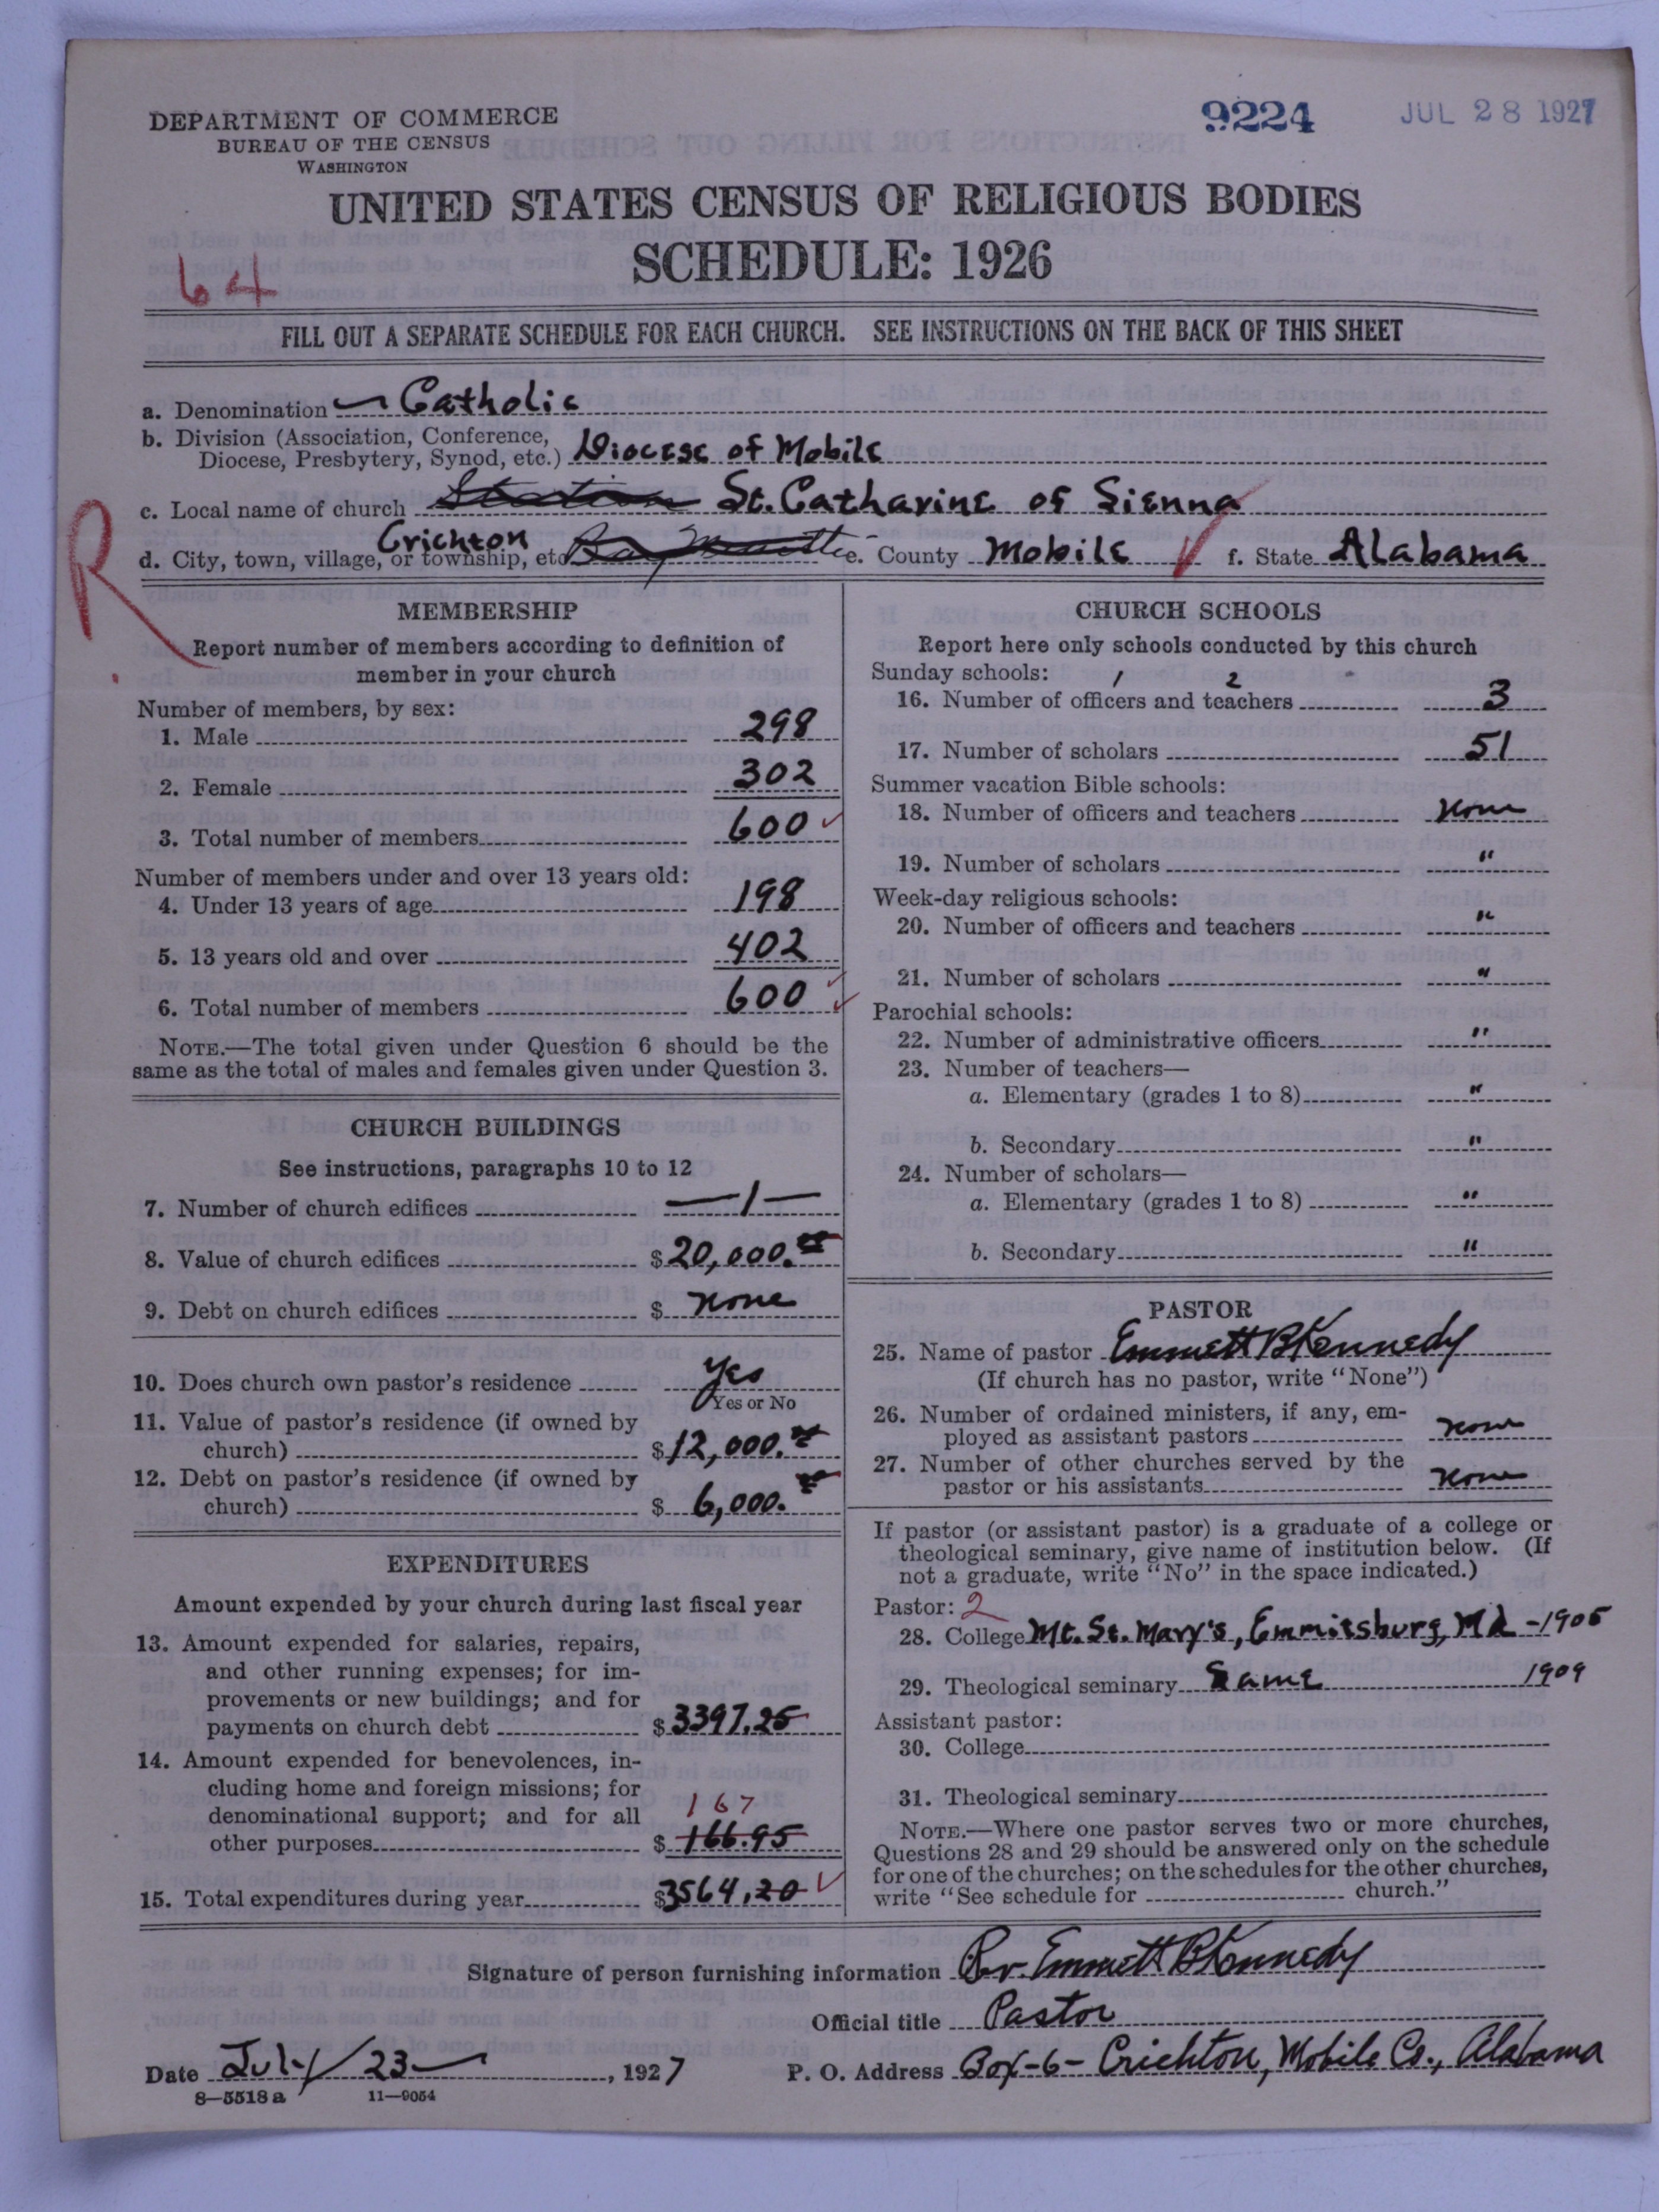 DEPARTMENT OF COMMERCE
BUREAU OF THE CENSUS
WASHINGTON
9224
JUL 28 1927
UNITED STATES CENSUS OF RELIGIOUS BODIES
SCHEDULE: 1926
64
FILL OUT A SEPARATE SCHEDULE FOR EACH CHURCH. SEE INSTRUCTIONS ON THE BACK OF THIS SHEET
a. Denomination Catholic
b. Division (Association, Conference,
Diocese, Presbytery, Synod, etc.) Diocese of Mobile
c. Local name of church Station St. Catharine of Sienna
R
d. City, town, village, or township, etc. Crichton e. County Mobile f. State Alabama
MEMBERSHIP
Report number of members according to definition of
member in your church
Number of members, by sex:
1. Male 298
2. Female 302
3. Total number of members 600
Number of members under and over 13 years old:
4. Under 13 years of age 198
5. 13 years old and over 402
6. Total number of members 600
NOTE.—The total given under Question 6 should be the
same as the total of males and females given under Question 3.
CHURCH BUILDINGS
See instructions, paragraphs 10 to 12
7. Number of church edifices —1—
8. Value of church edifices $20,000.
9. Debt on church edifices $ none
10. Does church own pastor's residence Yes
Yes or No
11. Value of pastor's residence (if owned by
church) $12,000.
12. Debt on pastor's residence (if owned by
church) $ 6,000.
EXPENDITURES
Amount expended by your church during last fiscal year
13. Amount expended for salaries, repairs,
and other running expenses; for im-
provements or new buildings; and for
payments on church debt $3397.25
14. Amount expended for benevolences, in-
cluding home and foreign missions; for
denominational support; and for all
167
other purposes $166.95
15. Total expenditures during year $3564.20
CHURCH SCHOOLS
Report here only schools conducted by this church
Sunday schools:
1 2
16. Number of officers and teachers 3
17. Number of scholars 51
Summer vacation Bible schools:
18. Number of officers and teachers none
19. Number of scholars "
Week-day religious schools:
20. Number of officers and teachers "
21. Number of scholars "
Parochial schools:
22. Number of administrative officers "
23. Number of teachers—
a. Elementary (grades 1 to 8) "
b. Secondary "
24. Number of scholars—
a. Elementary (grades 1 to 8) "
b. Secondary "
PASTOR
25. Name of pastor Emmett B Kennedy
(If church has no pastor, write "None")
26. Number of ordained ministers, if any, em-
ployed as assistant pastors none
27. Number of other churches served by the
pastor or his assistants none
If pastor (or assistant pastor) is a graduate of a college or
theological seminary, give name of institution below. (If
not a graduate, write "No" in the space indicated.)
Pastor: 2
28. College Mt. St. Mary's, Emmitsburg, Md - 1905
29. Theological seminary Same 1909
Assistant pastor:
30. College
31. Theological seminary
NOTE.—Where one pastor serves two or more churches,
Questions 28 and 29 should be answered only on the schedule
for one of the churches; on the schedules for the other churches,
write "See schedule for church."
Signature of person furnishing information Rev. Emmett B Kennedy
Official title Pastor
Date July 23, 1927 P. O. Address Box-6- Crichton, Mobile Co., Alabama
8—5518 a 11—9054